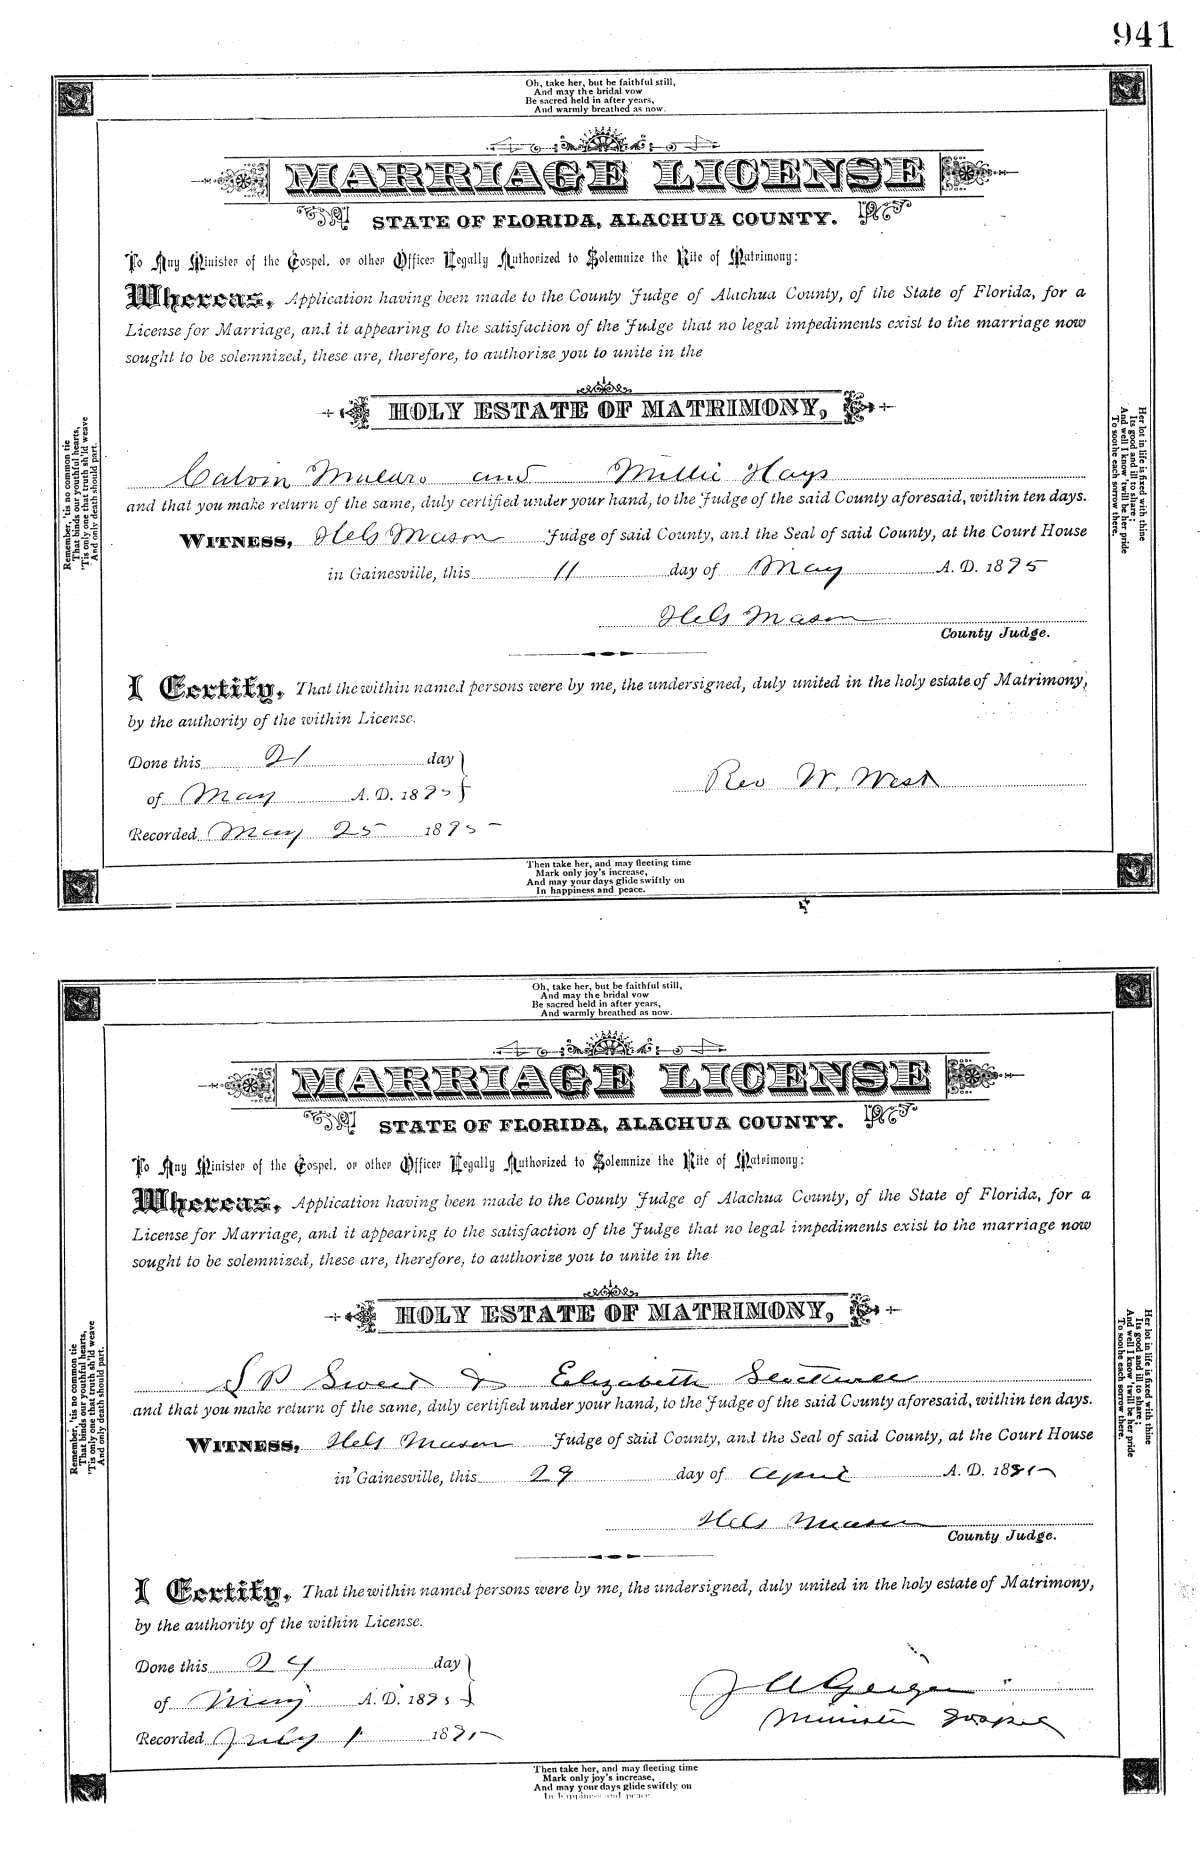 941
Oh, take her, but be faithful still,
And may the bridal vow
Be sacred held in after years,
And warmly breathed as now.
MARRIAGE LICENSE
STATE OF FLORIDA, ALACHUA COUNTY.
To Any Minister of the Gospel, or other Officer Legally Authorized to Solemnize the Rite of Matrimony:
Whereas, Application having been made to the County Judge of Alachua County, of the State of Florida, for a
License for Marriage, and it appearing to the satisfaction of the Judge that no legal impediments exist to the marriage now
sought to be solemnized, these are, therefore, to authorize you to unite in the
HOLY ESTATE OF MATRIMONY,
Calvin and Millie Hays
and that you make return of the same, duly certified under your hand, to the Judge of the said County aforesaid, within ten days.
WITNESS, Mason Judge of said County, and the Seal of said County, at the Court House
in Gainesville, this 11 day of May A. D. 1895
Mason
County Judge.
I Certify, That the within named persons were by me, the undersigned, duly united in the holy estate of Matrimony,
by the authority of the within License.
Done this 21 day
of May A. D. 1895
Rev W. West
Recorded May 25 1895
Remember, 'tis no common tie
That binds our youthful hearts,
'Tis only one that truth sh'ld weave
And only death should part.
Her lot in life is fixed with thine
Its good and ill to share;
And well I know 'twill be her pride
To soothe each sorrow there.
Then take her, and may fleeting time
Mark only joy's increase,
And may your days glide swiftly on
In happiness and peace.
Oh, take her, but be faithful still,
And may the bridal vow
Be sacred held in after years,
And warmly breathed as now.
MARRIAGE LICENSE
STATE OF FLORIDA, ALACHUA COUNTY.
To Any Minister of the Gospel, or other Officer Legally Authorized to Solemnize the Rite of Matrimony:
Whereas, Application having been made to the County Judge of Alachua County, of the State of Florida, for a
License for Marriage, and it appearing to the satisfaction of the Judge that no legal impediments exist to the marriage now
sought to be solemnized, these are, therefore, to authorize you to unite in the
HOLY ESTATE OF MATRIMONY,
S P Sweat & Elizabeth
and that you make return of the same, duly certified under your hand, to the Judge of the said County aforesaid, within ten days.
WITNESS, Mason Judge of said County, and the Seal of said County, at the Court House
in Gainesville, this 29 day of April A. D. 1895
Mason
County Judge.
I Certify, That the within named persons were by me, the undersigned, duly united in the holy estate of Matrimony,
by the authority of the within License.
Done this 24 day
of May A. D. 1895
J A Geiger
Minister Gospel
Recorded July 1 1895
Remember, 'tis no common tie
That binds our youthful hearts,
'Tis only one that truth sh'ld weave
And only death should part.
Her lot in life is fixed with thine
Its good and ill to share;
And well I know 'twill be her pride
To soothe each sorrow there.
Then take her, and may fleeting time
Mark only joy's increase,
And may your days glide swiftly on
In happiness and peace.